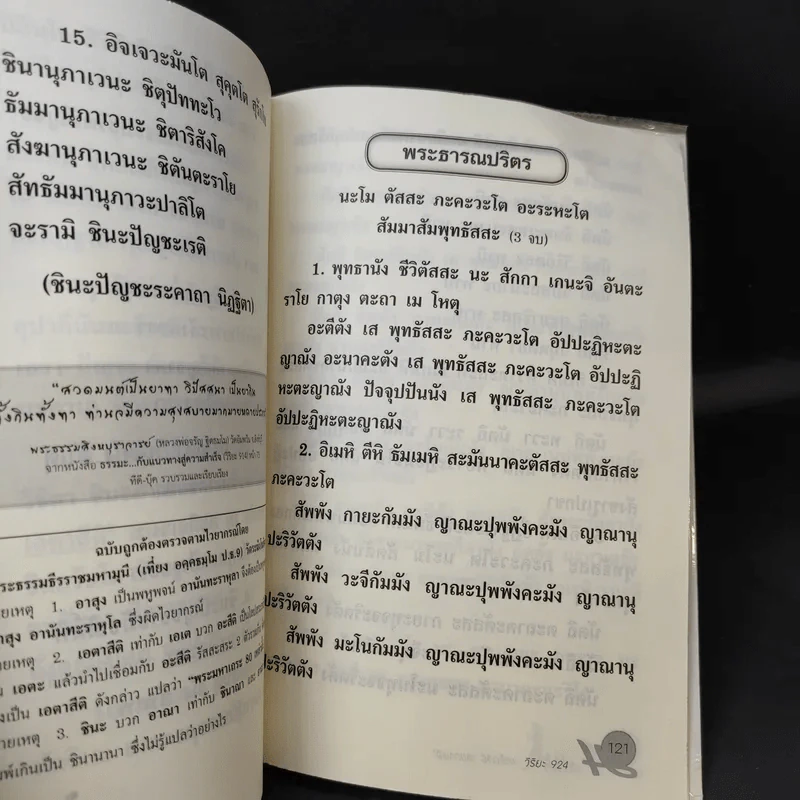 15. อิจเจวะมันโต สุคุตโต
ชินานุภาเวนะ ชิตุปัททะโว
ธัมมานุภาเวนะ ชิตาริสังโค
สังฆานุภาเวนะ ชิตันตะราโย
สัทธัมมานุภาวะปาลิโต
จะรามิ ชินะปัญชะเรติ
(ชินะปัญชะระคาถา นิฏฐิตา)
"สวดมนต์เป็นยาทา วิปัสสนา เป็นยากิน
ทั้งกินทั้งทา ท่านจะมีความสุขสบายมากมายหลายประการ
พระธรรมสิงหบุราจารย์ (หลวงพ่อจรัญ ฐิตธมฺโม)
จากหนังสือ ธรรมะ...กับแนวทางสู่ความสำเร็จ (วิริยะ 914)
ทีดี-บุ๊ค รวบรวมและเรียบเรียง
ฉบับถูกต้องตรวจตามไวยากรณ์โดย
พระธรรมธีรราชมหามุนี (เที่ยง อคฺคธมฺโม ป.ธ.9)
1. อาสุง เป็นพหูพจน์ อานันทะราหุลา
อาสุง อานันทะราหุโล ซึ่งผิดไวยากรณ์
2. เอตาสีติ เท่ากับ เอเต บวก อะสีติ
เป็น เอตะ แล้วนำไปเชื่อมกับ อะสีติ รัสสะสระ 2
เป็น เอตาสีติ ดังกล่าว แปลว่า "พระมหาเถระ 80
3. ชินะ บวก อาณา เท่ากับ ชินาณา
พิมพ์เกินเป็น ชินานานา ซึ่งไม่รู้แปลว่าอย่างไร
พระธารณปริตร
นะโม ตัสสะ ภะคะวะโต อะระหะโต
สัมมาสัมพุทธัสสะ (3 จบ)
1. พุทธานัง ชีวิตัสสะ นะ สักกา เกนะจิ อันตะ
ราโย กาตุง ตะถา เม โหตุ
อะตีตัง เส พุทธัสสะ ภะคะวะโต อัปปะฏิหะตะ
ญาณัง อะนาคะตัง เส พุทธัสสะ ภะคะวะโต อัปปะฏิ
หะตะญาณัง ปัจจุปปันนัง เส พุทธัสสะ ภะคะวะโต
อัปปะฏิหะตะญาณัง
2. อิเมหิ ตีหิ ธัมเมหิ สะมันนาคะตัสสะ พุทธัสสะ
ภะคะวะโต
สัพพัง กายะกัมมัง ญาณะปุพพังคะมัง ญาณานุ
ปะริวัตตัง
สัพพัง วะจีกัมมัง ญาณะปุพพังคะมัง ญาณานุ
ปะริวัตตัง
สัพพัง มะโนกัมมัง ญาณะปุพพังคะมัง ญาณานุ
ปะริวัตตัง
วิริยะ 924
121